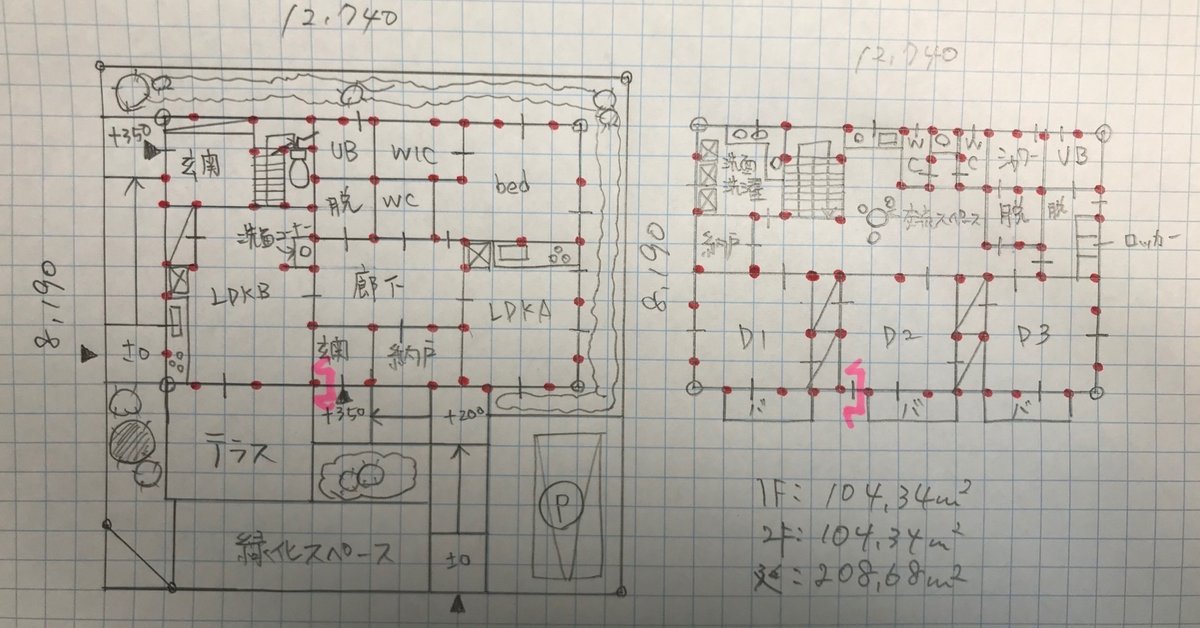 12,740
12,740
+350
玄関
UB
WIC
bed
脱
WC
洗面
8,190
LDKB
廊下
LDKA
±0
玄関
納戸
+350
+200
テラス
P
緑化スペース
±0
洗面
洗濯
WC
WC
シャワー
UB
脱
脱
ロッカー
納戸
8,190
D1
D2
D3
バ
バ
バ
1F: 104,34m²
2F: 104,34m²
: 208,68m²